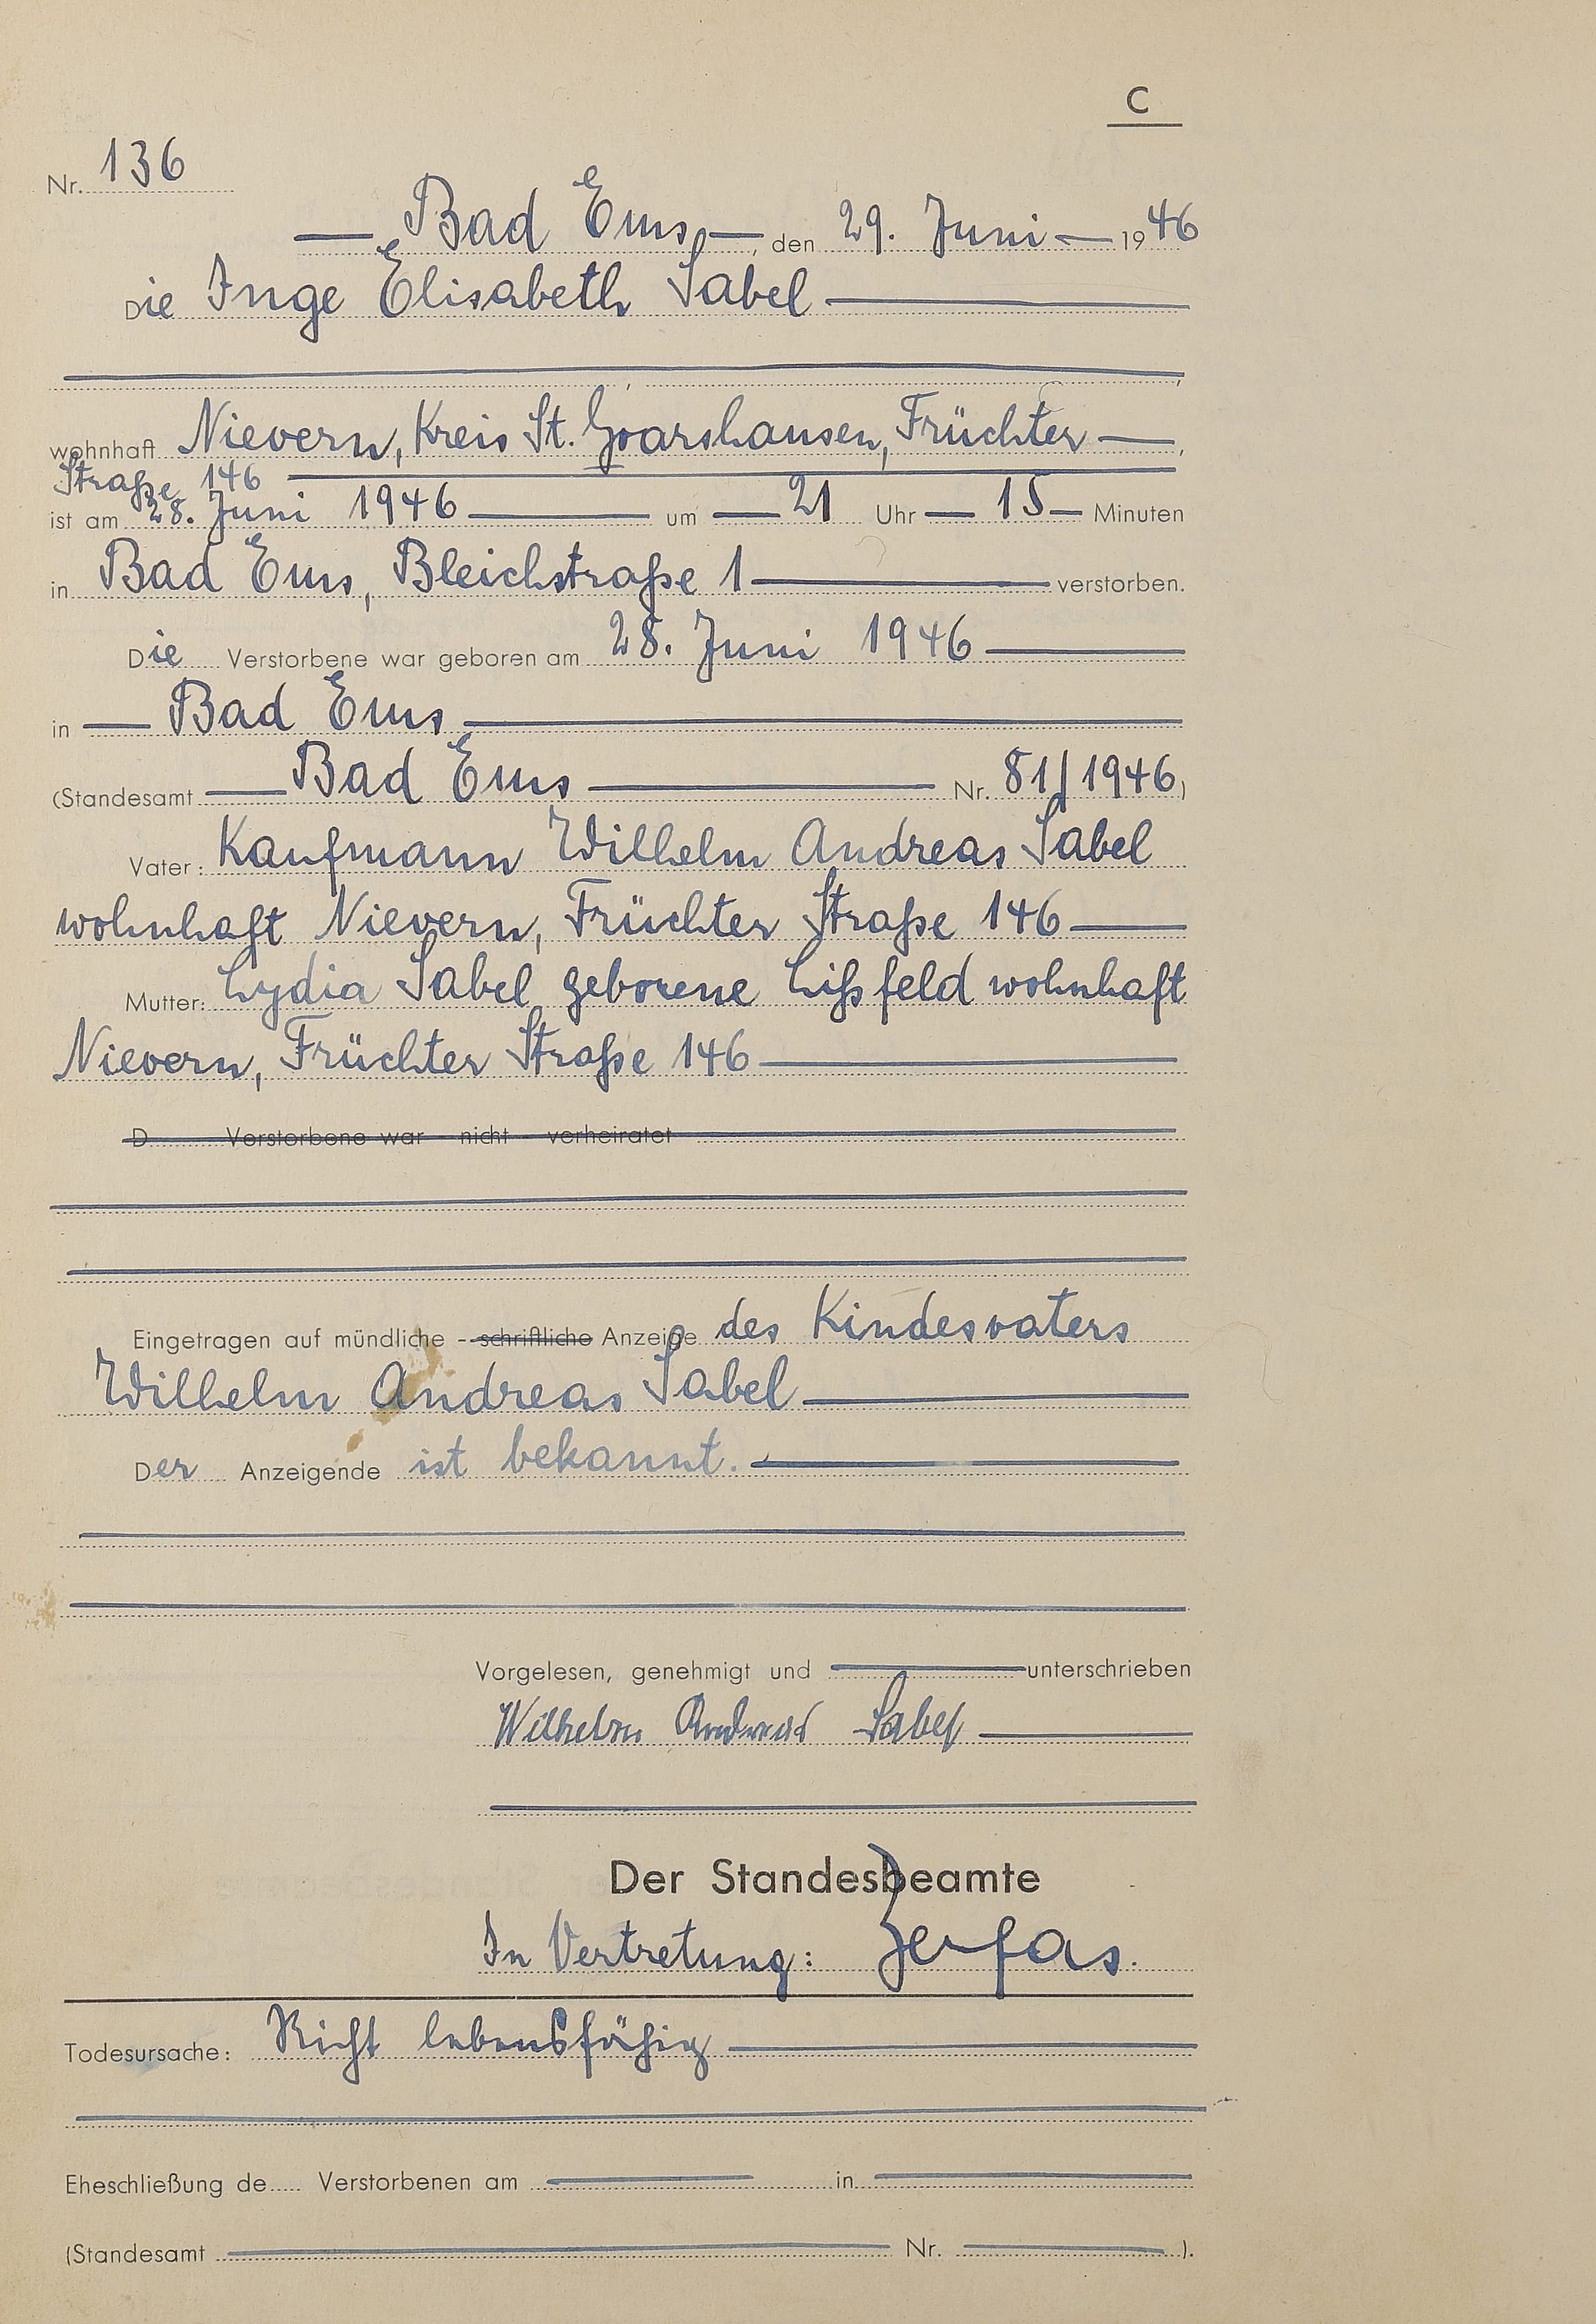 C
Nr. 136
Bad Ems, den 29. Juni 1946
Die Inge Elisabeth Sabel
wohnhaft Nievern, Kreis St. Goarshausen, Früchter
Straße 146
ist am 28. Juni 1946 um 21 Uhr 15 Minuten
in Bad Ems, Bleichstraße 1 verstorben.
Die Verstorbene war geboren am 28. Juni 1946
in Bad Ems
(Standesamt Bad Ems Nr. 81/1946)
Vater: Kaufmann Wilhelm Andreas Sabel
wohnhaft Nievern, Früchter Straße 146
Mutter: Lydia Sabel geborene Lißfeld wohnhaft
Nievern, Früchter Straße 146
D Verstorbene war – nicht – verheiratet
Eingetragen auf mündliche – schriftliche Anzeige des Kindesvaters
Wilhelm Andreas Sabel
Der Anzeigende ist bekannt.
Vorgelesen, genehmigt und unterschrieben
Wilhelm Andreas Sabel
Der Standesbeamte
In Vertretung: Zerfas.
Todesursache: Nicht lebensfähig
Eheschließung de Verstorbenen am in
(Standesamt Nr. ).